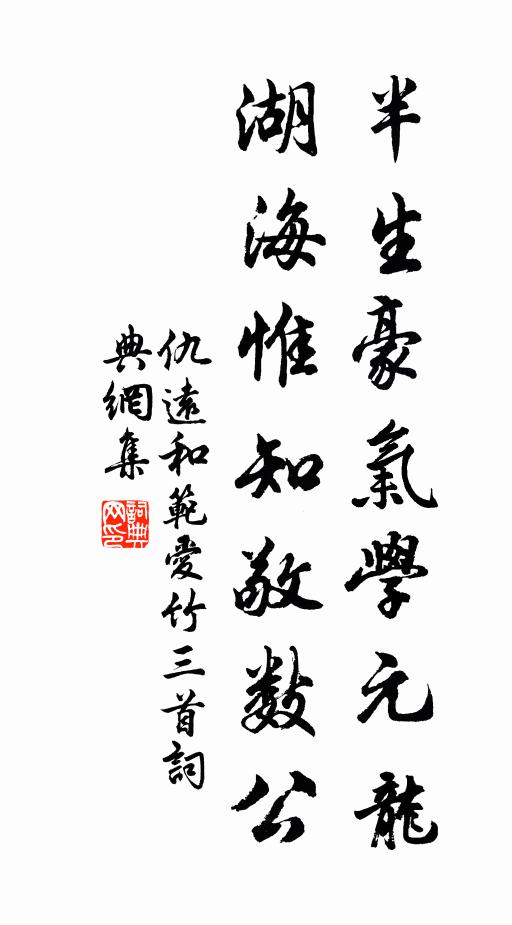 半生豪氣學元龍
湖海惟知敬数公
仇遠和範愛竹三首詞
典網集
詞典网印